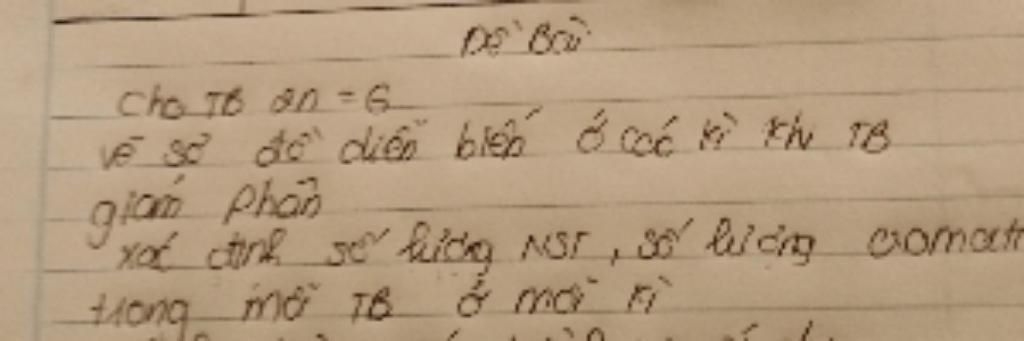 Đề Bài
Cho TB 2n = 6
vẽ sơ đồ diễn biến ở các kì khi TB
giảm phân
xác định số lượng NST, số lượng cromatit
trong mỗi TB ở mỗi kì